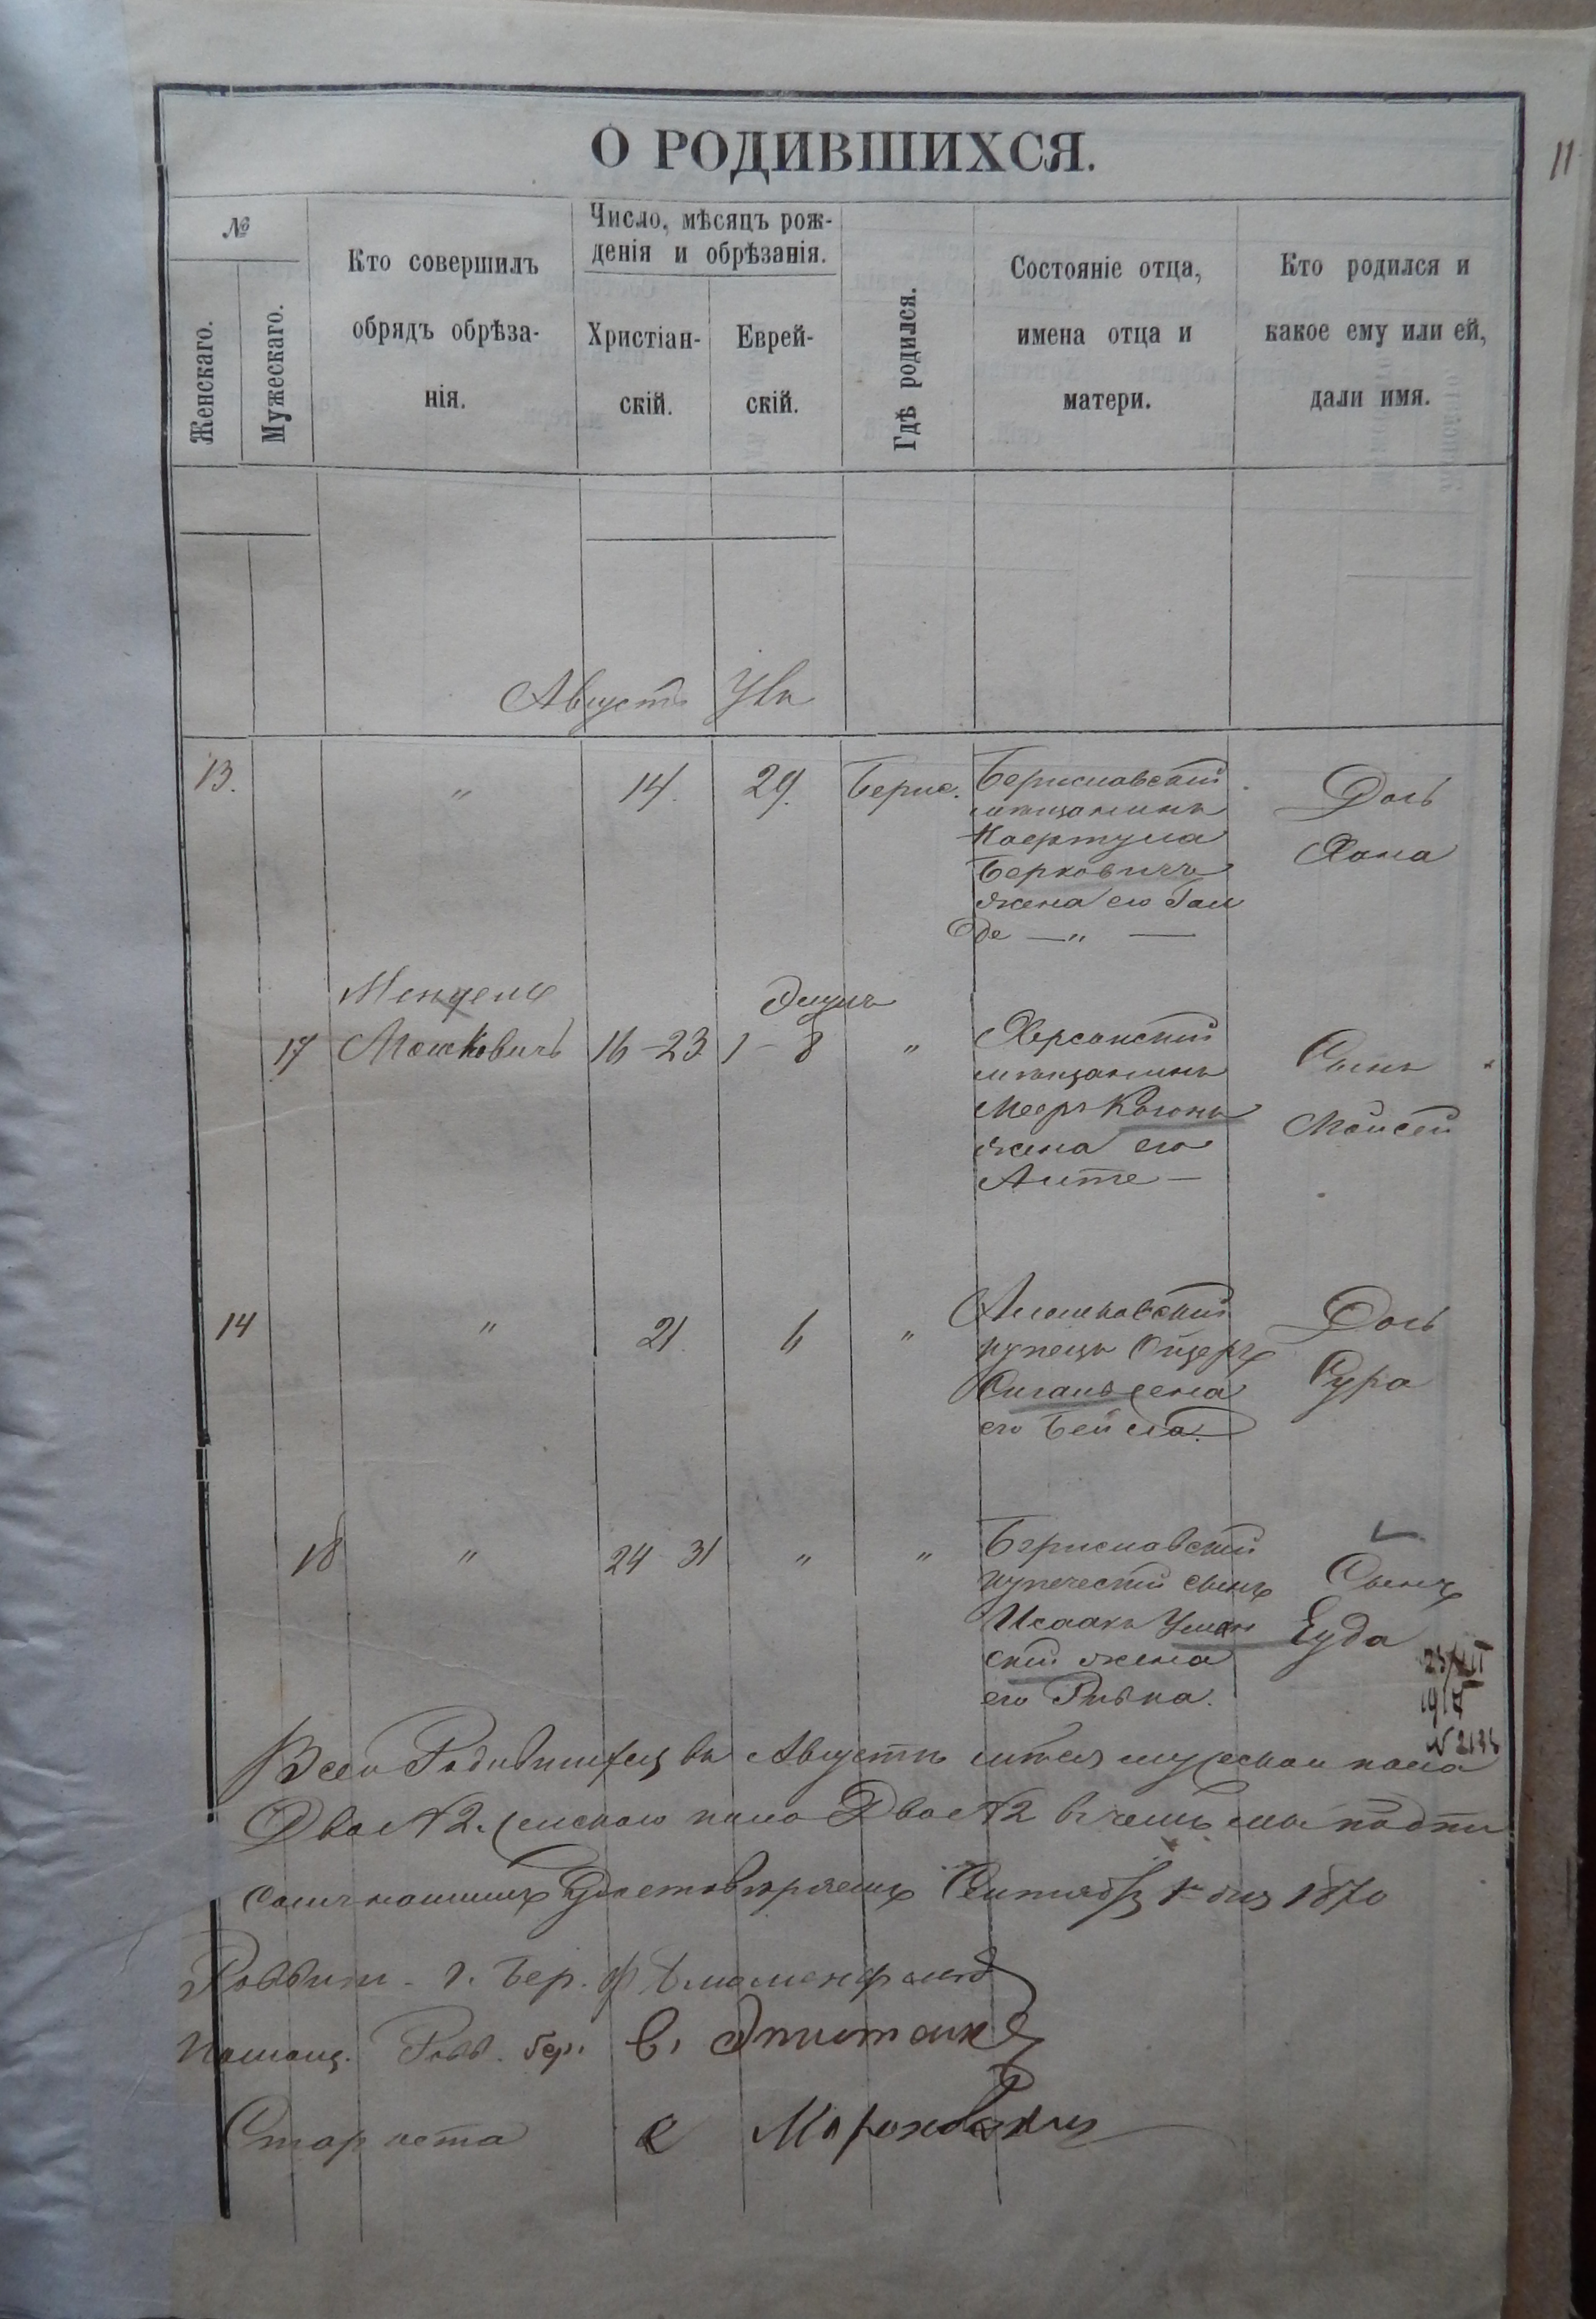 О РОДИВШИХСЯ.
11
№
Женскаго.
Мужескаго.
Кто совершилъ
обрядъ обрѣза-
нія.
Число, мѣсяцъ рож-
денія и обрѣзанія.
Христіан-
скій.
Еврей-
скій.
Гдѣ родился.
Состояніе отца,
имена отца и
матери.
Кто родился и
какое ему или ей,
дали имя.
Августъ
13. " 14. 29. Берис.
Бериславскій
мѣщанинъ
Берковичъ
жена его Гол
де — " —
Дочь
Хана
Элулъ
17
Мендель
Мошковичъ
16-23 1-8 "
Херсонскій
мѣщанинъ
Мееръ Когонъ
жена его
—
Сынъ
Мойсей
14 " 21 6 "
Алешковскій
купецъ
жена
его Бейла.
Дочь
Сура
18 " 24 31 " "
Бериславскій
купеческій сынъ
Исаакъ Уман
скій жена
его Ривка.
Сынъ
Еуда
Всего Родившихся въ Августѣ м-цѣ мужескаго пола
Два №2. женскаго пола Два №2 въ чемъ мы подпи
сомъ нашимъ Удостовѣряемъ Сентября 1 дня 1870
Раввинъ г. Бер. Блюменфельд
Помощ. Равв. Бер. В. Эпштейн
Староста